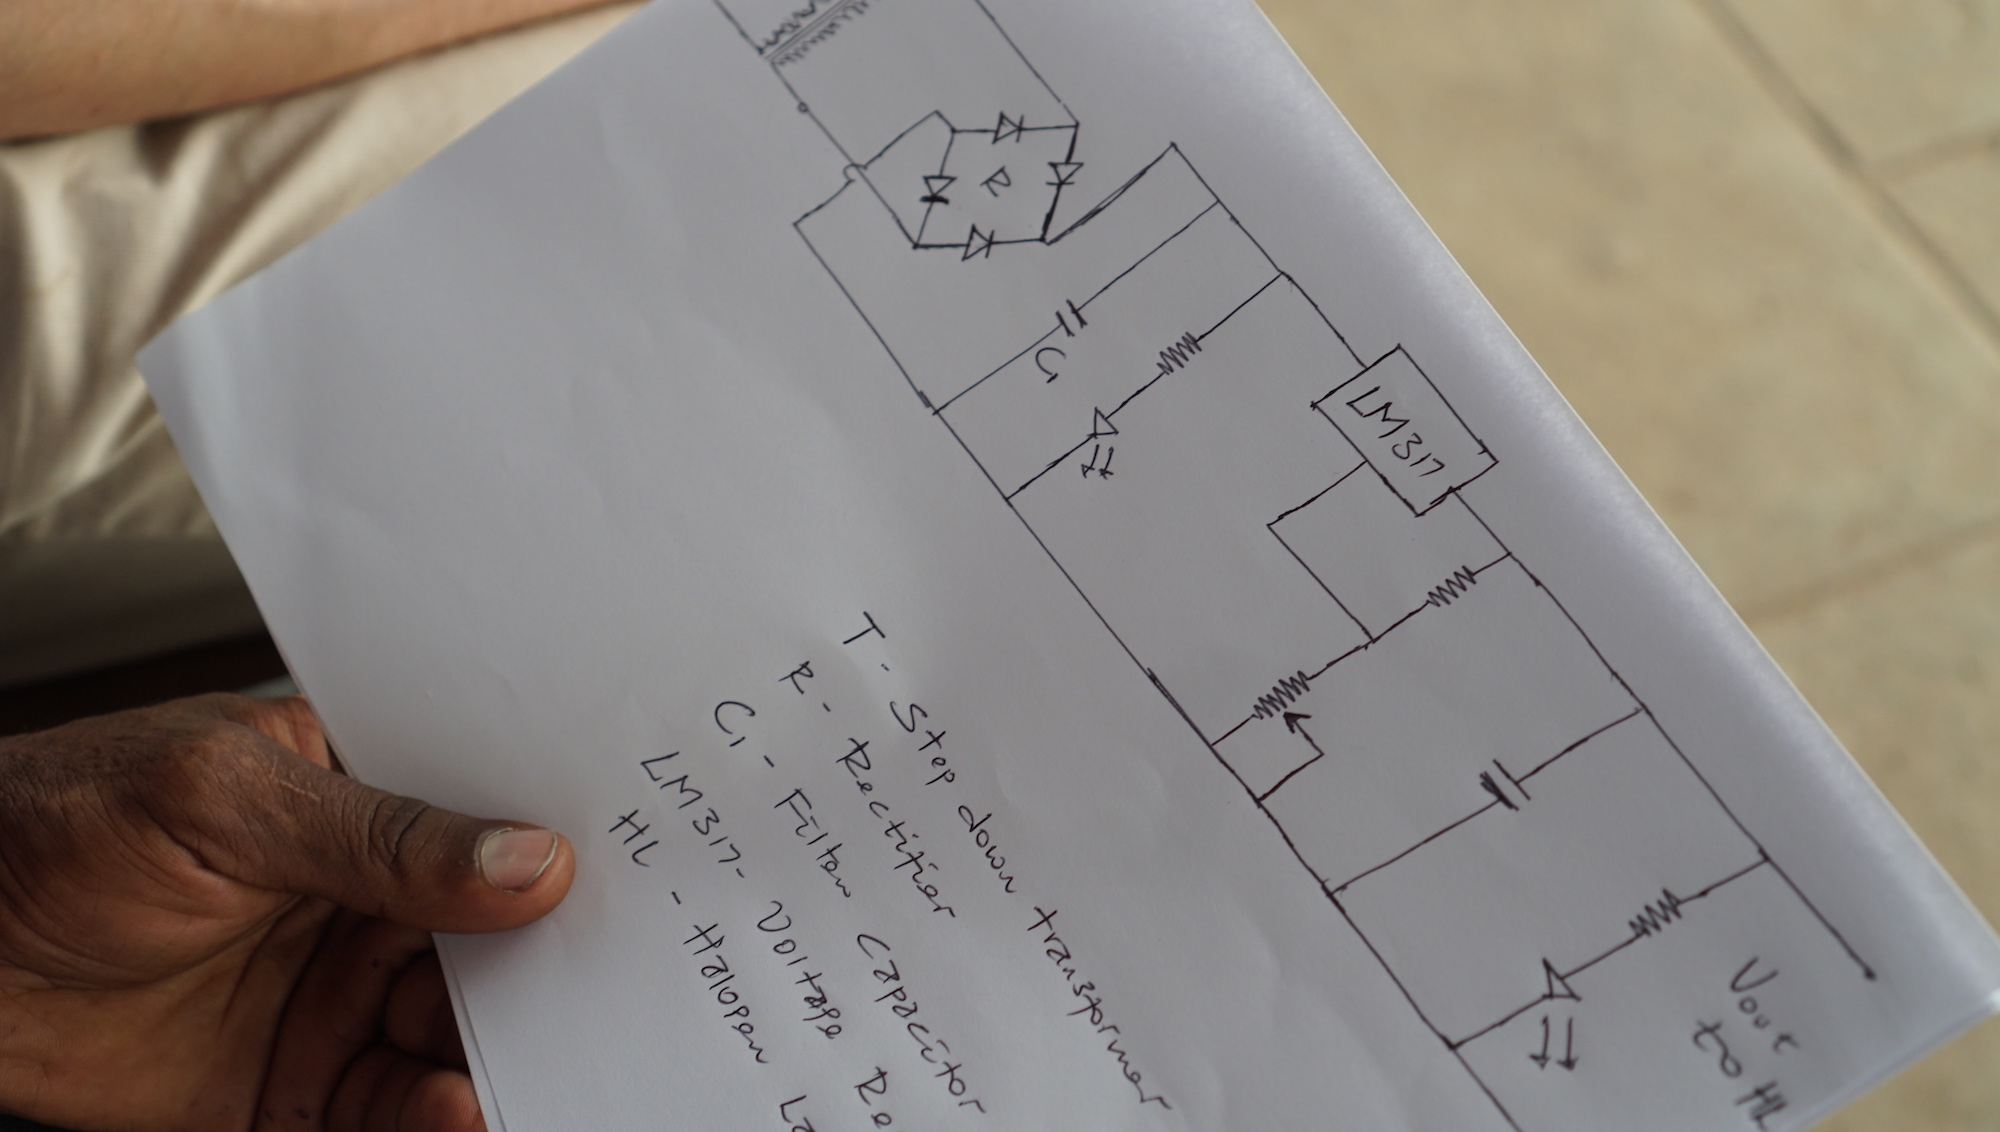 R
C1
LM317
Vout
to HL
T - Step down transformer
R - Rectifier
C1 - Filter Capacitor
LM317 - Voltage Re
HL - Halogen La